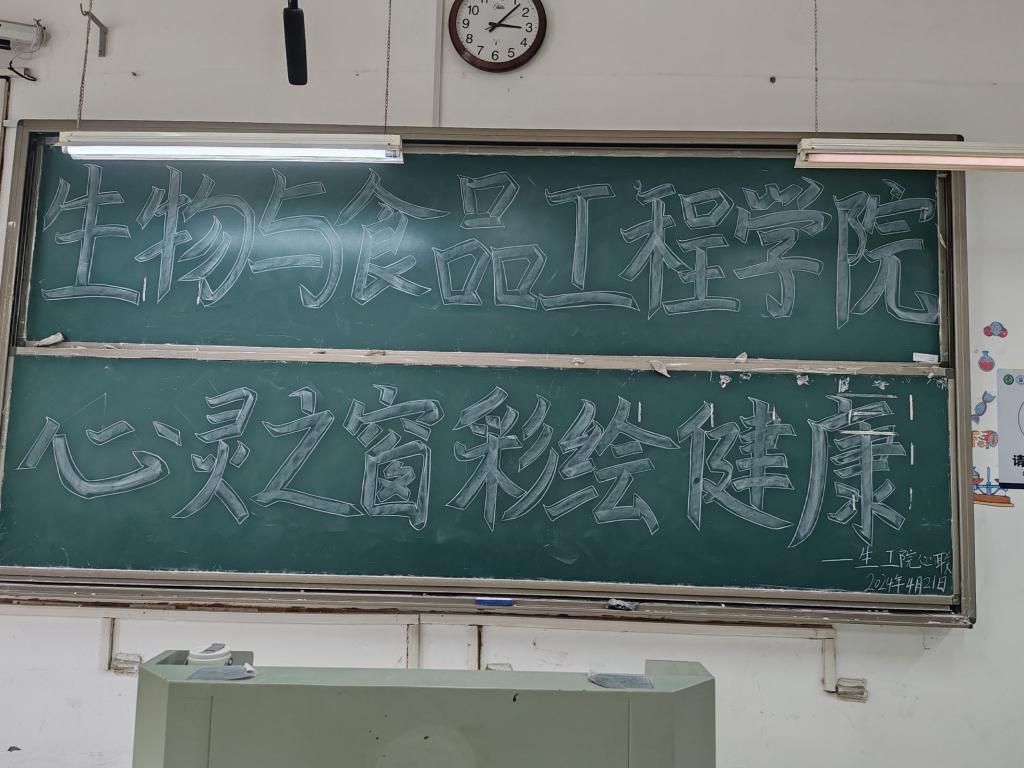 生物与食品工程学院
心灵之窗彩绘健康
—生工院心联
2024年4月21日
10 2
9 3
8 4
7 6 5
请